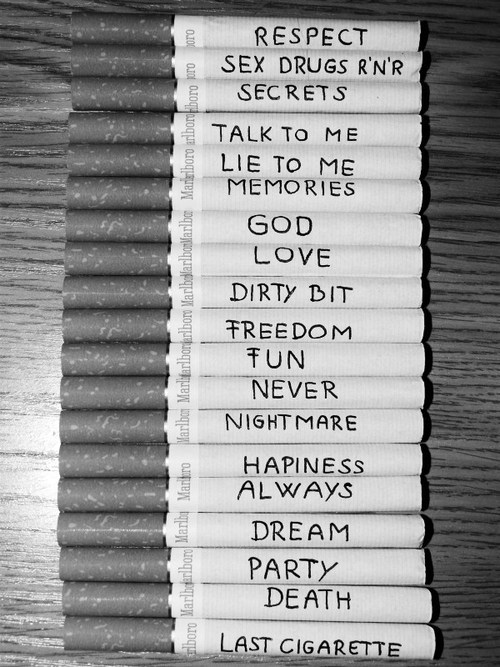 RESPECT
SEX DRUGS R'N'R
SECRETS
TALK TO ME
LIE TO ME
MEMORIES
GOD
LOVE
DIRTY BIT
FREEDOM
FUN
NEVER
NIGHTMARE
HAPINESS
ALWAYS
DREAM
PARTY
DEATH
LAST CIGARETTE